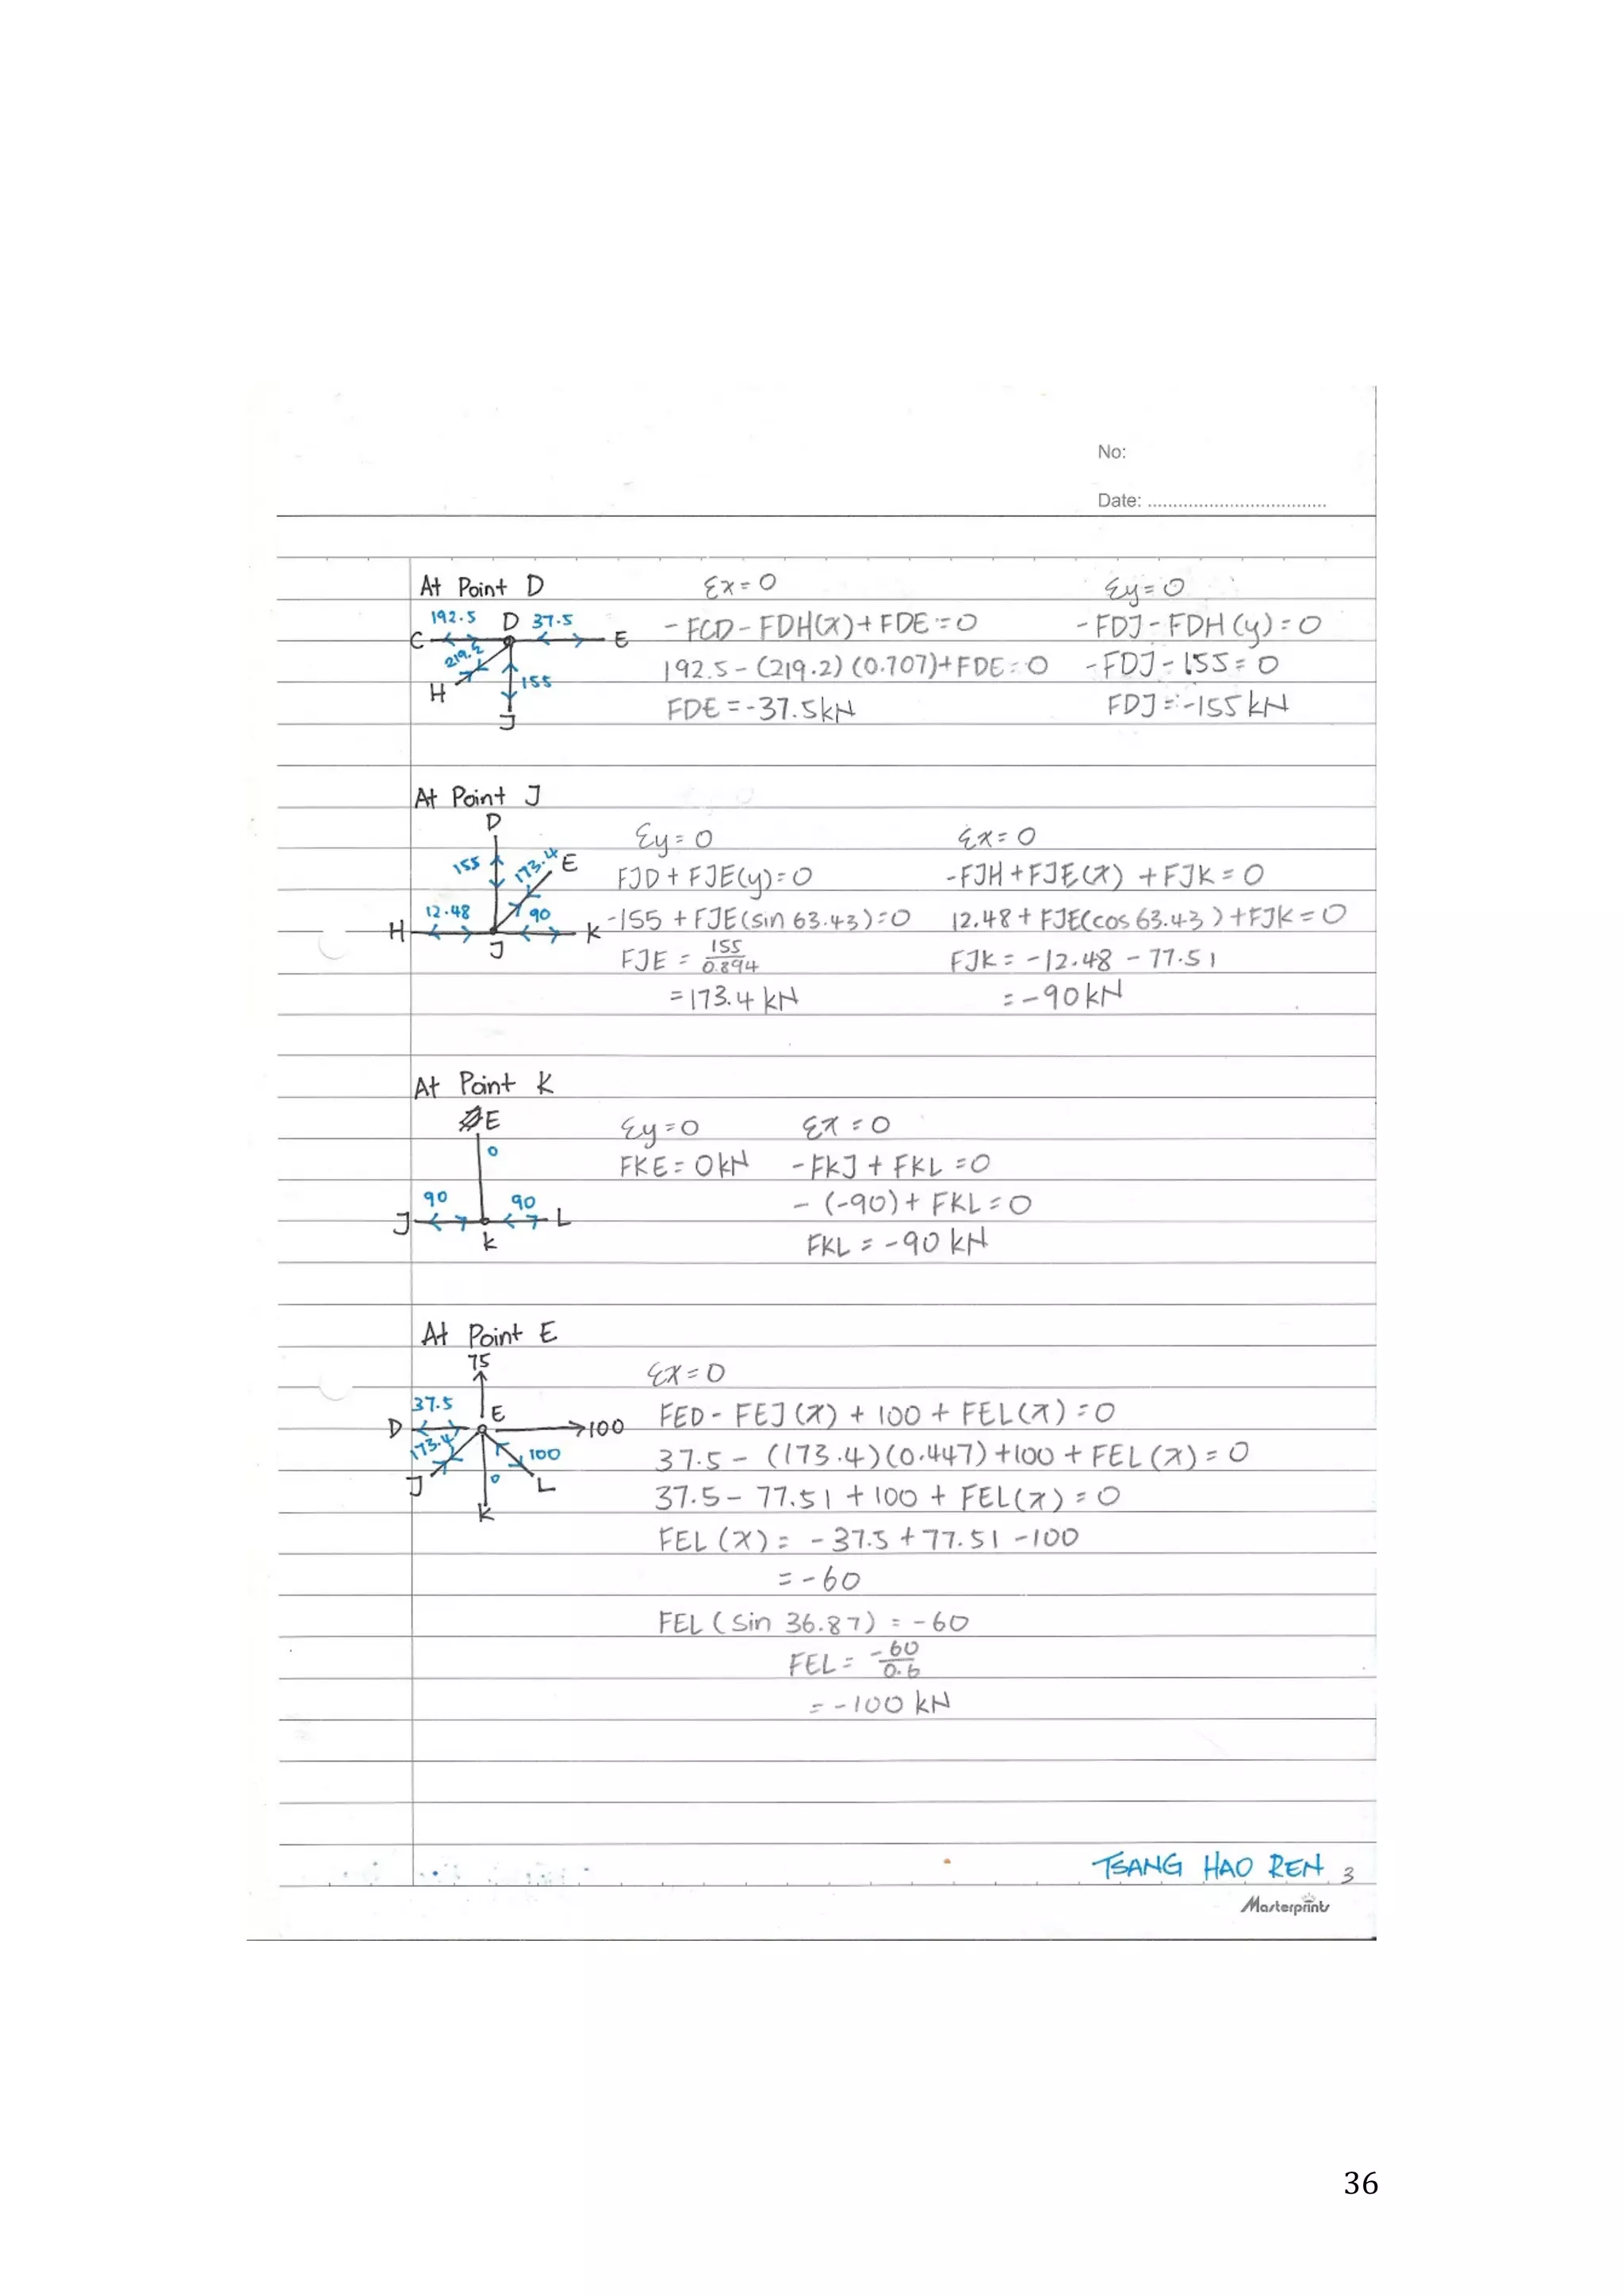 No:
Date: ..................................
At Point D
192.5 D 37.5
C E
219.2
155
H
J
Σx = 0
- FCD - FDH(x) + FDE = 0
192.5 - (219.2) (0.707) + FDE = 0
FDE = -37.5kN
Σy = 0
- FDJ - FDH (y) = 0
- FDJ - 155 = 0
FDJ = -155 kN
At Point J
D
155 173.4 E
12.48 90
H K
J
Σy = 0
FJD + FJE(y) = 0
-155 + FJE(sin 63.43) = 0
FJE = 155/0.894
= 173.4 kN
Σx = 0
-FJH + FJE(x) + FJK = 0
12.48 + FJE(cos 63.43) + FJK = 0
FJK = -12.48 - 77.51
= -90kN
At Point K
E
0
90 90
J L
K
Σy = 0
FKE = 0kN
Σx = 0
- FKJ + FKL = 0
- (-90) + FKL = 0
FKL = -90 kN
At Point E
75
37.5
E
D 100
173.4 100
J 0 L
K
Σx = 0
FED - FEJ (x) + 100 + FEL(x) = 0
37.5 - (173.4)(0.447) + 100 + FEL (x) = 0
37.5 - 77.51 + 100 + FEL(x) = 0
FEL (x) = - 37.5 + 77.51 - 100
= - 60
FEL ( Sin 36.87) = - 60
FEL = -60/0.6
= - 100 kN
TSANG HAO REN 3
Masterprint
36